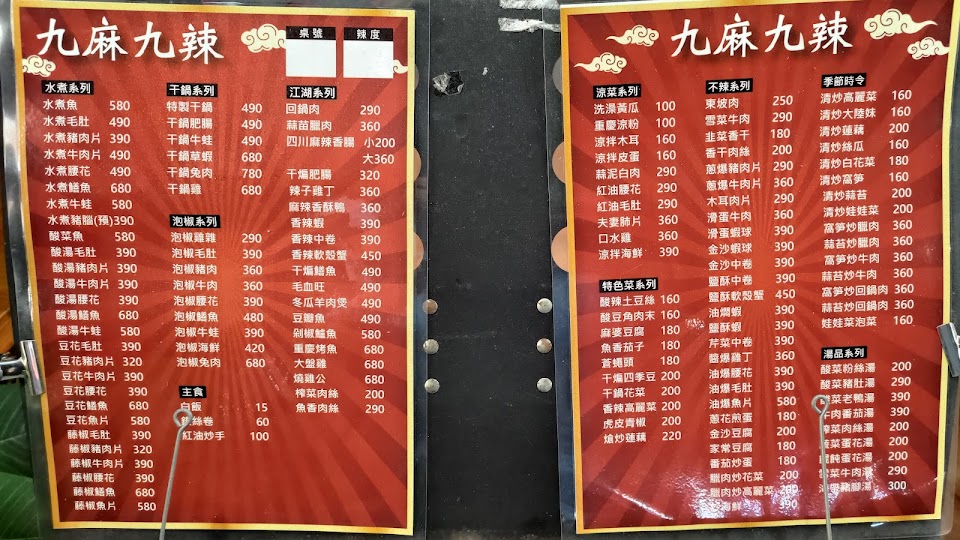 九麻九辣
桌號
辣度
水煮系列
水煮魚 580
水煮毛肚 490
水煮豬肉片 390
水煮牛肉片 490
水煮腰花 490
水煮鱔魚 680
水煮牛蛙 580
水煮豬腦(預)390
酸菜魚 580
酸湯毛肚 390
酸湯豬肉片 390
酸湯牛肉片 390
酸湯腰花 390
酸湯鱔魚 680
酸湯牛蛙 580
豆花毛肚 390
豆花豬肉片 320
豆花牛肉片 390
豆花腰花 390
豆花鱔魚 680
豆花魚片 580
藤椒毛肚 390
藤椒豬肉片 320
藤椒牛肉片 390
藤椒腰花 390
藤椒鱔魚 680
藤椒魚片 580
干鍋系列
特製干鍋 490
干鍋肥腸 490
干鍋牛蛙 490
干鍋草蝦 680
干鍋兔肉 780
干鍋雞 680
泡椒系列
泡椒雞雜 290
泡椒毛肚 390
泡椒豬肉 360
泡椒牛肉 360
泡椒腰花 390
泡椒鱔魚 480
泡椒牛蛙 390
泡椒海鮮 420
泡椒兔肉 680
主食
白飯 15
絲卷 60
紅油炒手 100
江湖系列
回鍋肉 290
蒜苗臘肉 360
四川麻辣香腸 小200
大360
干煸肥腸 320
辣子雞丁 360
麻辣香酥鴨 360
香辣蝦 390
香辣中卷 390
香辣軟殼蟹 450
干煸鱔魚 490
毛血旺 490
冬瓜羊肉煲 490
豆瓣魚 490
剁椒鱸魚 580
重慶烤魚 680
大盤雞 680
燒雞公 680
榨菜肉絲 200
魚香肉絲 290
九麻九辣
涼菜系列
洗澡黃瓜 100
重慶涼粉 100
涼拌木耳 160
涼拌皮蛋 160
蒜泥白肉 290
紅油腰花 290
紅油毛肚 290
夫妻肺片 360
口水雞 360
涼拌海鮮 390
特色菜系列
酸辣土豆絲 160
酸豆角肉末 160
麻婆豆腐 180
魚香茄子 180
蒼蠅頭 180
干煸四季豆 200
干鍋花菜 200
香辣高麗菜 200
虎皮青椒 200
熗炒蓮藕 220
不辣系列
東坡肉 250
雪菜牛肉 290
韭菜香干 180
香干肉絲 200
蔥爆豬肉片 290
蔥爆牛肉片 360
木耳肉片 290
滑蛋牛肉 360
滑蛋蝦球 390
金沙蝦球 390
金沙中卷 390
鹽酥中卷 390
鹽酥軟殼蟹 450
油燜蝦 390
鹽酥蝦 390
芹菜中卷 390
醬爆雞丁 360
油爆腰花 390
油爆毛肚 390
油爆魚片 580
蔥花煎蛋 180
金沙豆腐 200
家常豆腐 180
番茄炒蛋 180
臘肉炒花菜 200
臘肉炒高麗菜 200
炒海鮮 390
季節時令
清炒高麗菜 160
清炒大陸妹 160
清炒蓮藕 200
清炒絲瓜 160
清炒白花菜 180
清炒窩筍 160
清炒蒜苔 200
清炒娃娃菜 200
窩筍炒臘肉 360
蒜苔炒臘肉 360
窩筍炒牛肉 360
蒜苔炒牛肉 360
窩筍炒回鍋肉 360
蒜苔炒回鍋肉 360
娃娃菜泡菜 160
湯品系列
酸菜粉絲湯 200
酸菜豬肚湯 290
菜老鴨湯 390
牛肉番茄湯 390
榨菜肉絲湯 200
菜蛋花湯 200
蛋花湯 200
雪菜牛肉湯 290
豬腳湯 300